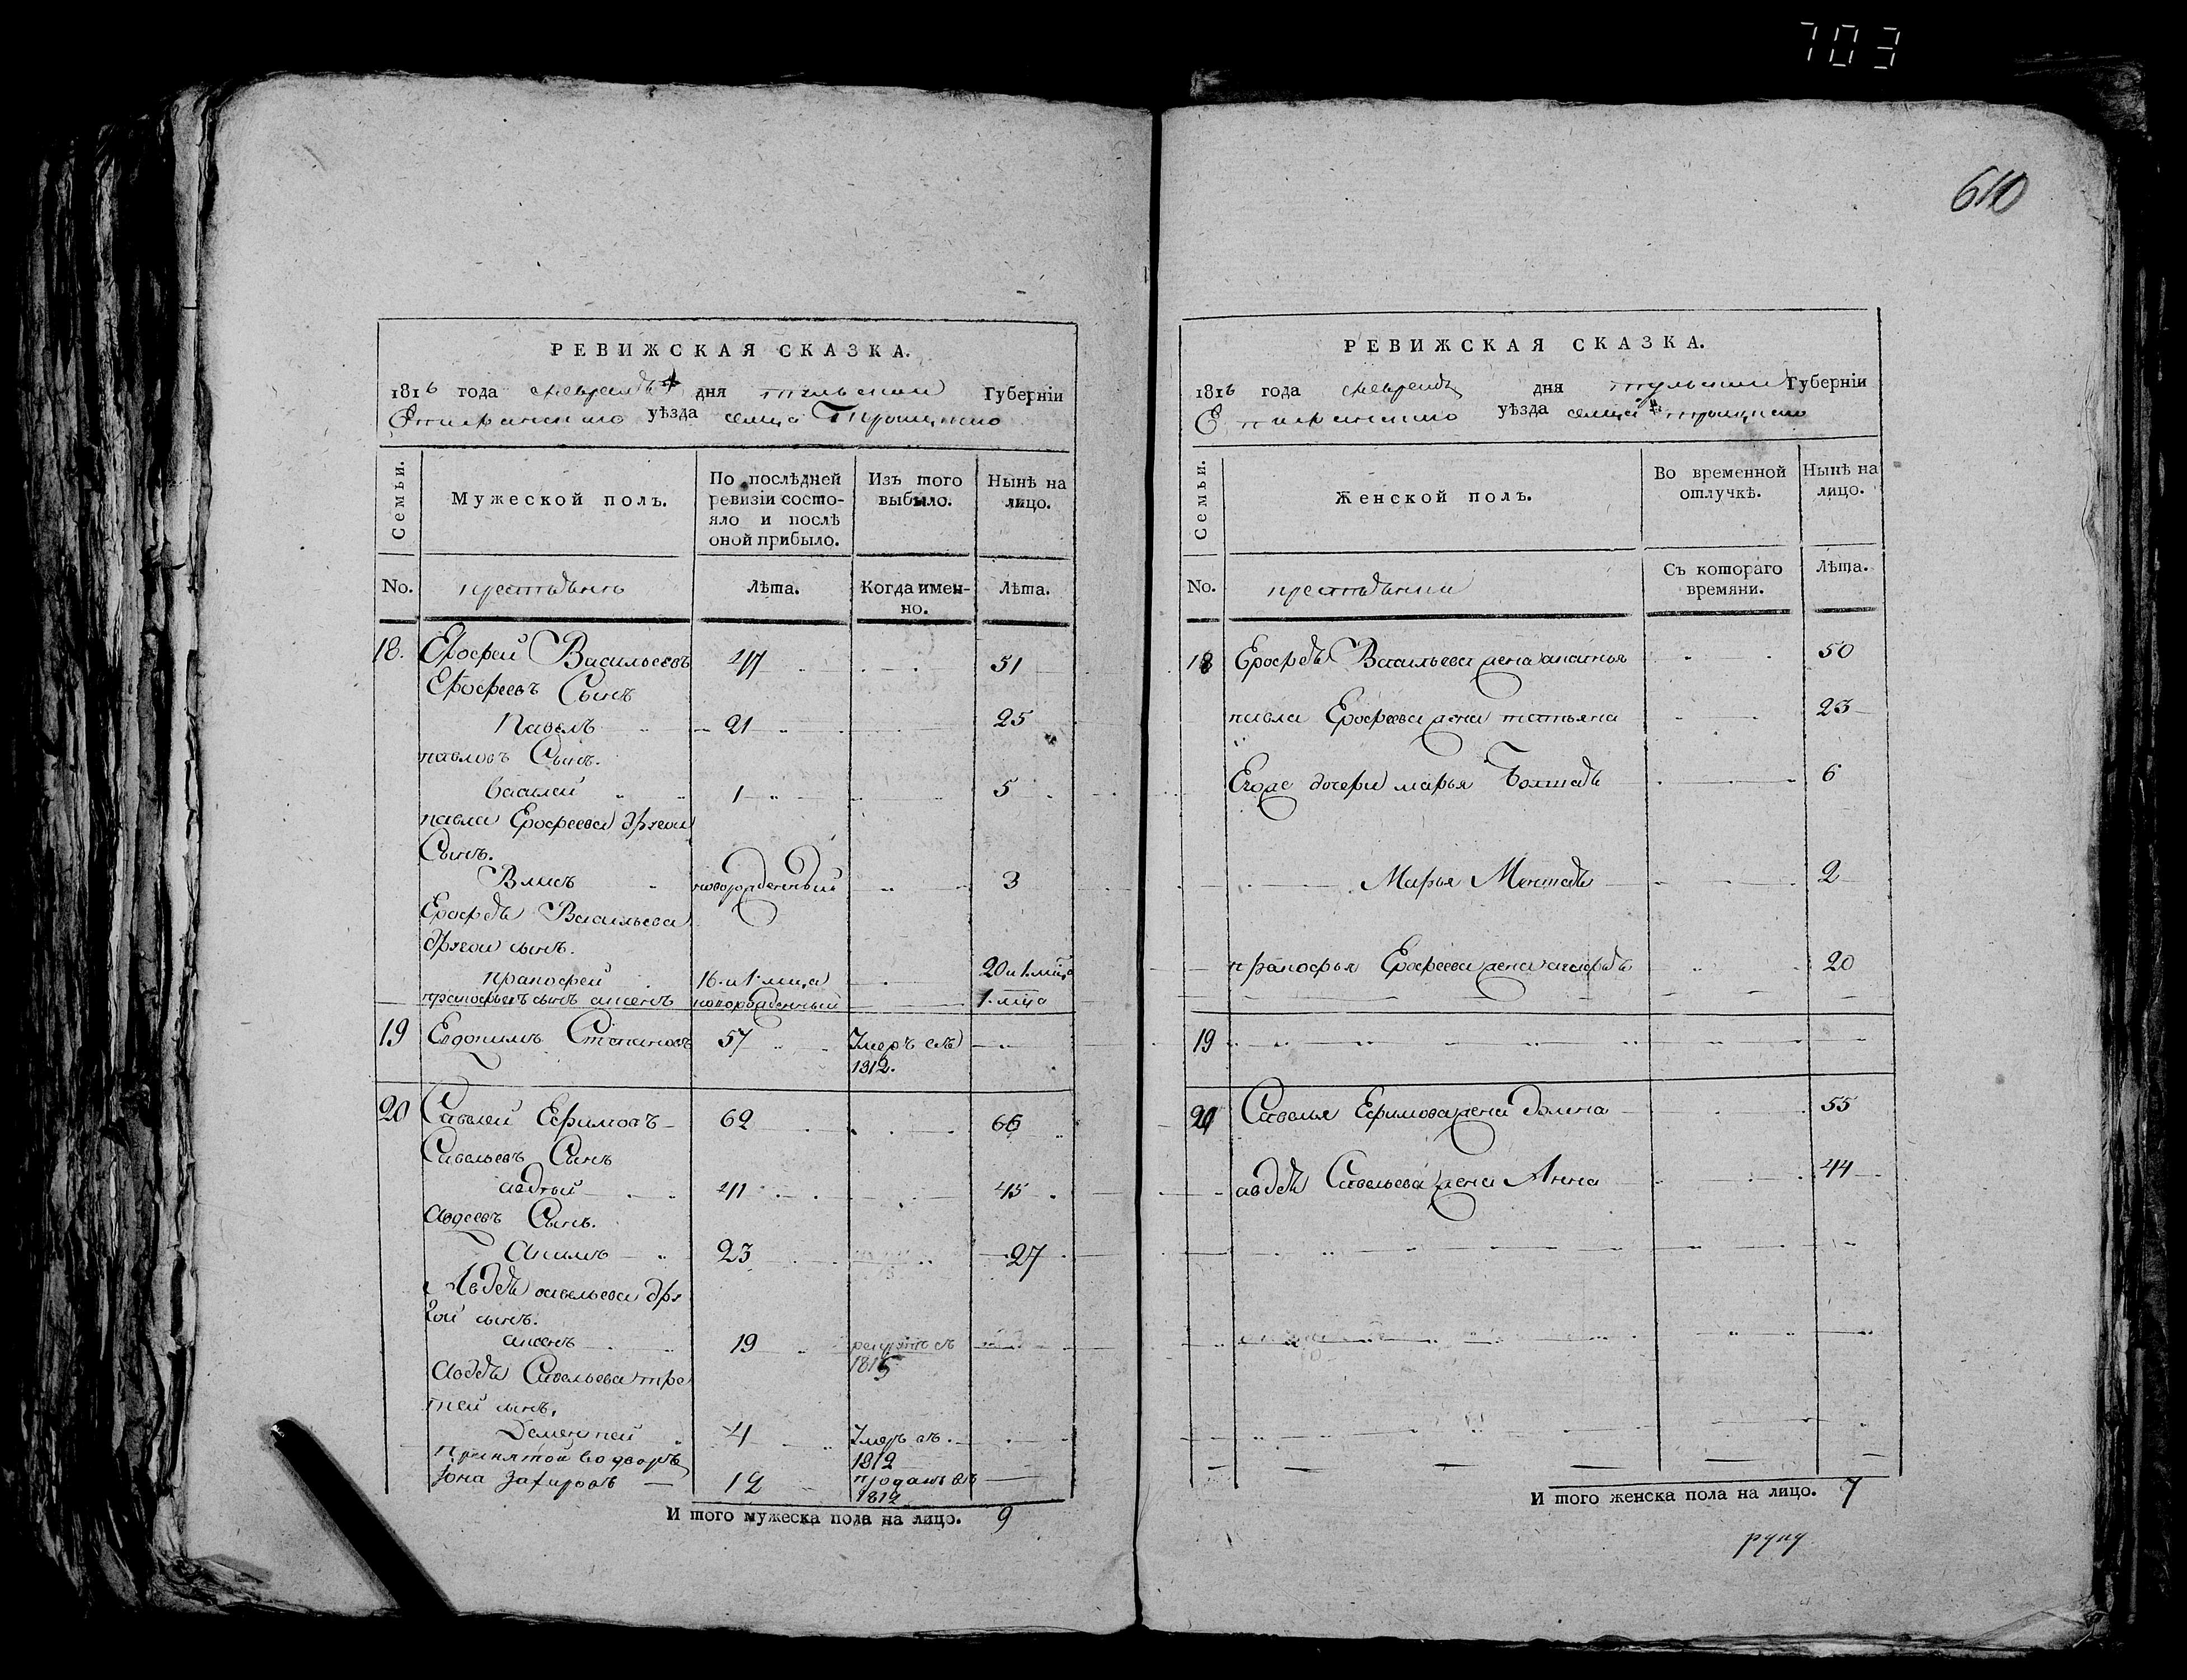 703
610
РЕВИЖСКАЯ СКАЗКА.
1816 года февраля дня тульской Губерніи
Епифанского уѣзда селца Троицкого
Семьи.
Мужеской полъ.
По послѣдней ревизіи состо-
яло и послѣ
оной прибыло.
Изъ того
выбыло.
Нынѣ на
лицо.
No.
крестьянъ
Лѣта.
Когда имен-
но.
Лѣта.
18. Ерофей Васильевъ 47 51
Ерофеевъ Сынъ
Павелъ 21 25
павловъ Сынъ.
Василей 1 5
павла Ерофеева другой
Сынъ.
Власъ новорожденный 3
Ерофея Васильева
другой сынъ.
Пракофей 16 и 1 мца 20 и 1. мцъ
пракофьевъ сынъ аксенъ новорожденный 1. мца
19 Евдокимъ Степановъ 57 Умеръ въ
1812.
20 Савелей Ефимовъ 62 66
Савельевъ Сынъ
авдѣй 41 45
Авдеевъ Сынъ.
Акимъ 23 27
Авдѣя савельева дру
гой сынъ.
аксенъ 19 рекрутъ въ
1815
Авдѣя Савельева тре
тей сынъ,
Дементей 4 Умеръ въ
1812
Принятой во дворъ
Зотъ Захаровъ 12 проданъ въ
1812
И того мужеска пола на лицо. 9
РЕВИЖСКАЯ СКАЗКА.
1816 года февраля дня тульской Губерніи
Епифанского уѣзда селца троицкого
Семьи.
Женской полъ.
Во временной
отлучкѣ.
Нынѣ на
лицо.
No.
крестьянки
Съ котораго
времяни.
Лѣта.
18 Ерофѣя Васильева жена 50
павла Ерофеева жена татьяна 23
Егоже дочери марья Болшая 6
Марья Меншая 2
пракофья Ерофеева жена 20
19
20 Савелья Ефимова жена 55
авдѣя Савельева жена Анна 44
И того женска пола на лицо. 7
руку